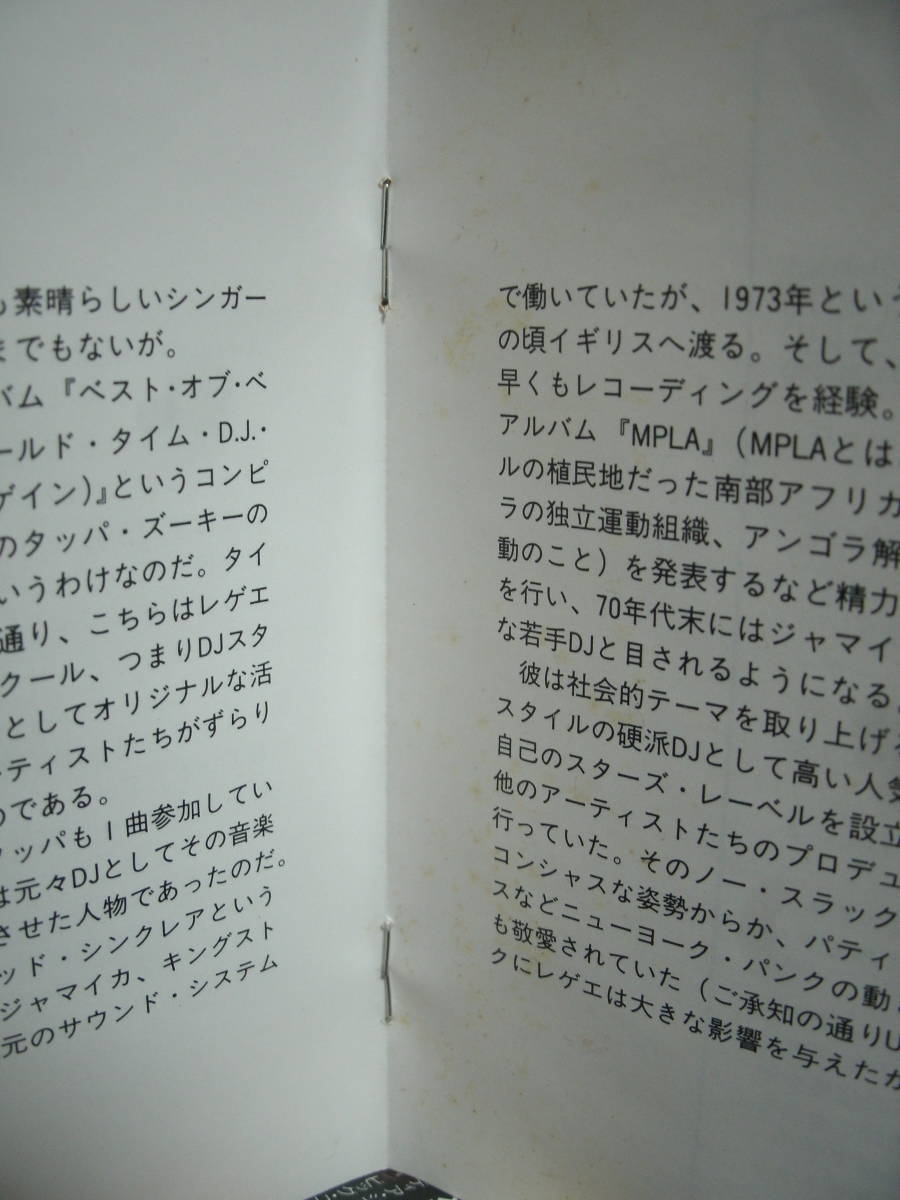 も素晴らしいシンガー
までもないが。
バム『ベスト・オブ・ベ
ールド・タイム・D.J.・
ゲイン)』というコンピ
のタッパ・ズーキーの
いうわけなのだ。タイ
通り、こちらはレゲエ
クール、つまりDJスタ
としてオリジナルな活
ーティストたちがずらり
のである。
タッパも1曲参加してい
は元々DJとしてその音楽
させた人物であったのだ。
ッド・シンクレアという
ジャマイカ、キングスト
元のサウンド・システム
で働いていたが、1973年という
の頃イギリスへ渡る。そして、
早くもレコーディングを経験。
アルバム『MPLA』(MPLAとは
ルの植民地だった南部アフリカ
ラの独立運動組織、アンゴラ解
動のこと)を発表するなど精力
を行い、70年代末にはジャマイ
な若手DJと目されるようになる
彼は社会的テーマを取り上げ
スタイルの硬派DJとして高い人気
自己のスターズ・レーベルを設立
他のアーティストたちのプロデュ
行っていた。そのノー・スラック
コンシャスな姿勢からか、パティ
スなどニューヨーク・パンクの動
も敬愛されていた(ご承知の通りU
クにレゲエは大きな影響を与えたか